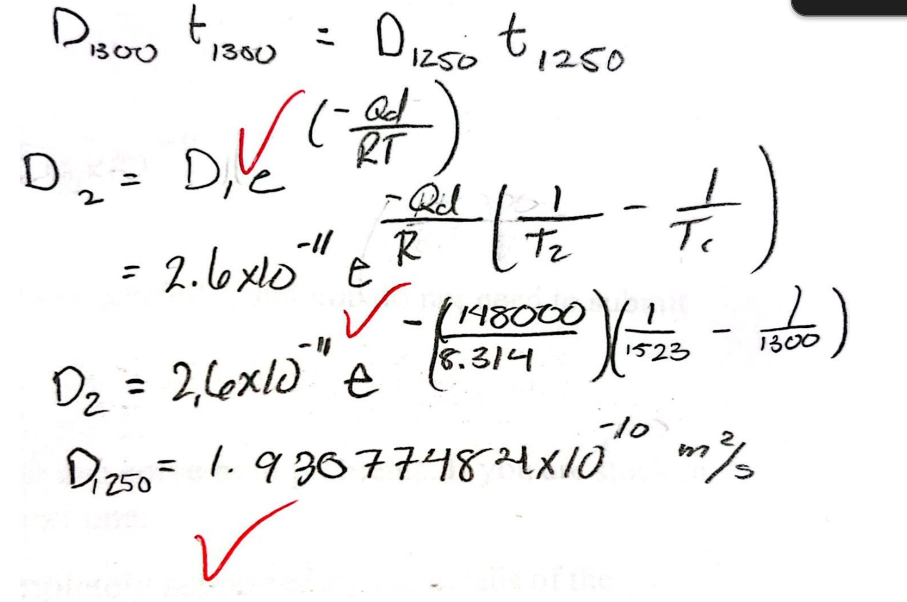 D₁₃₀₀ t₁₃₀₀ = D₁₂₅₀ t₁₂₅₀
D₂ = D₁e^(-Qd/RT)
= 2.6x10⁻¹¹ e^(-Qd/R (1/T₂ - 1/T₁))
D₂ = 2.6x10⁻¹¹ e^(-(148000/8.314)(1/1523 - 1/1300))
D₁₂₅₀ = x10⁻¹⁰ m²/s